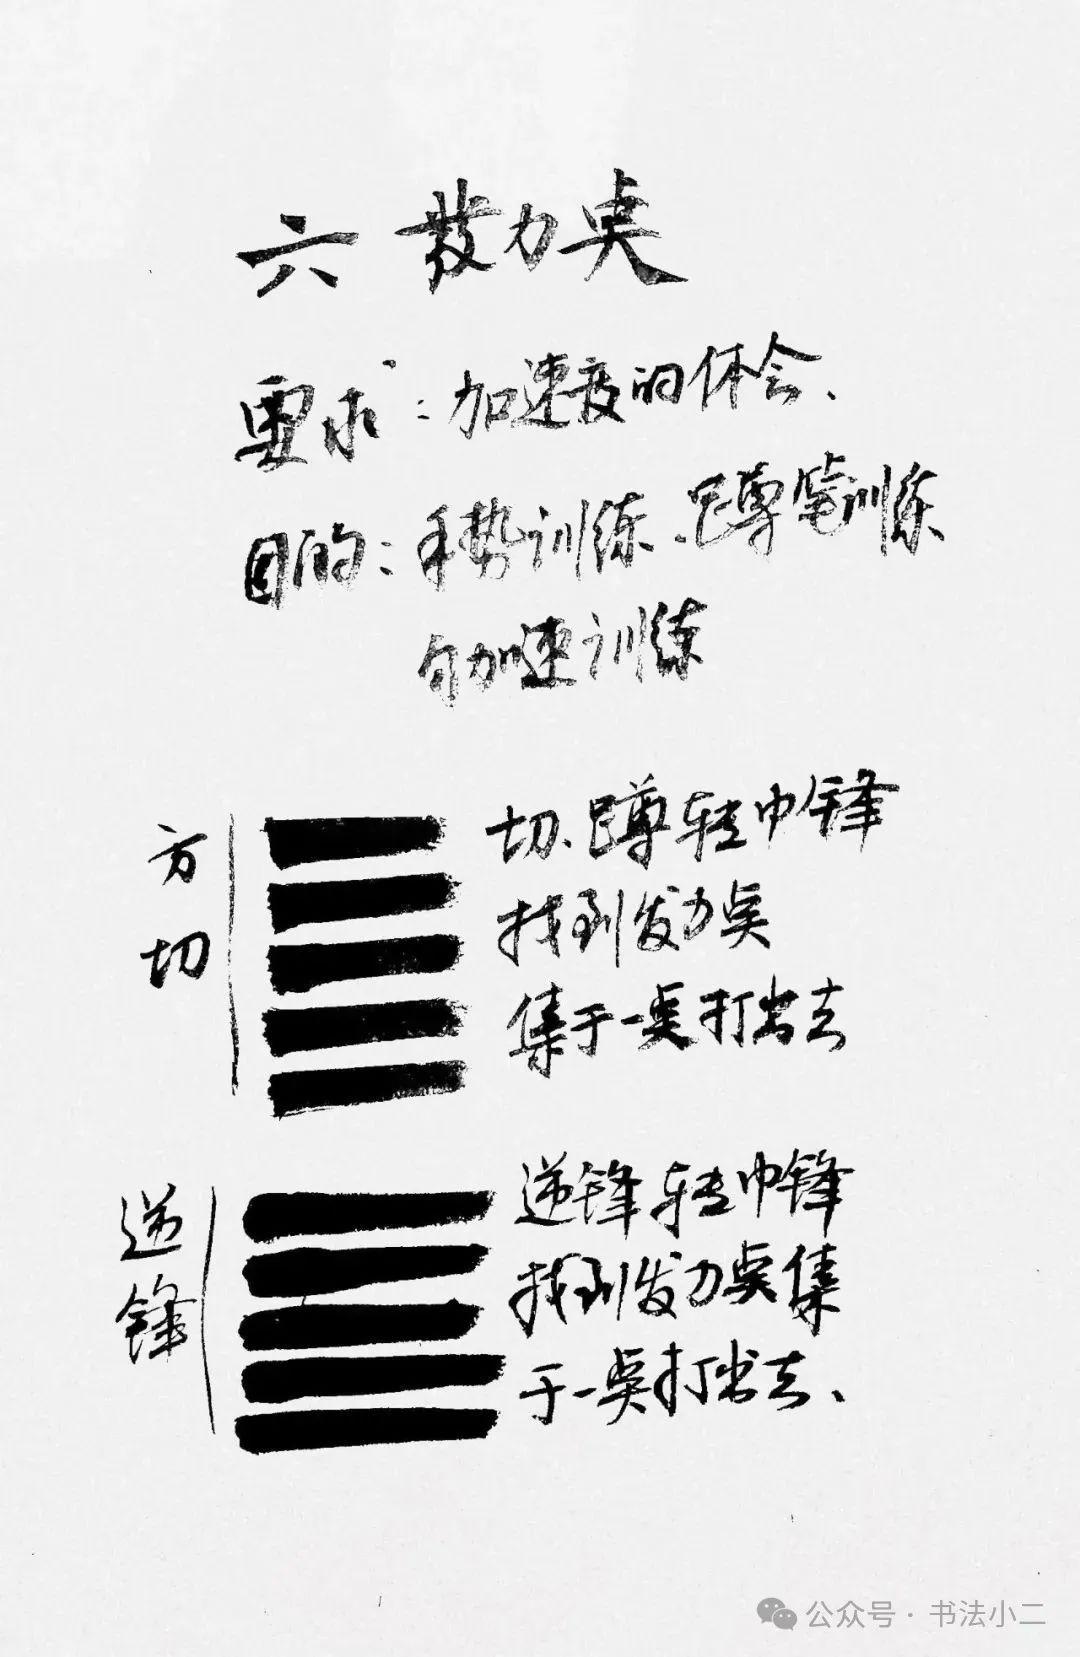 六 发力点
要求：加速度的体会、
目的：手势训练、蹲笔训练
匀加速训练
方切
切、蹲转中锋
找到发力点
集于一点打出去
逆锋
逆锋转中锋
找到发力点集
于一点打出去、
公众号·书法小二